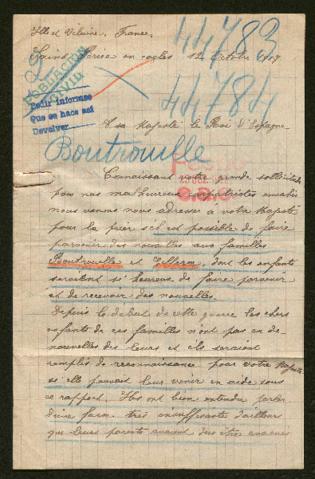 Ille et Vilaine, France.
44783
Saint en 12 Octobre
POBLACION
CIVIL
Pedir informes
Que se hace así
Devolver
44784
A sa Majesté le Roi d'Espagne
Boutrouille
Connaissant votre grande sollicitude
pour nos malheureux compatriotes envahis
nous venons nous adresser à votre Majesté
pour la prier s'il est possible de faire
parvenir des nouvelles aux familles
Boutrouille et dont les enfants
seraient si heureux de faire parvenir
et de recevoir des nouvelles.
Depuis le début de cette guerre les chers
enfants de ces familles n'ont pas eu de
nouvelles des leurs et ils seraient
remplis de reconnaissance pour votre Majesté
si elle pouvait leur venir en aide sous
ce rapport. Ils ont bien entendu parler
d'une façon très insuffisante d'ailleurs
que leurs parents avaient dus être évacués